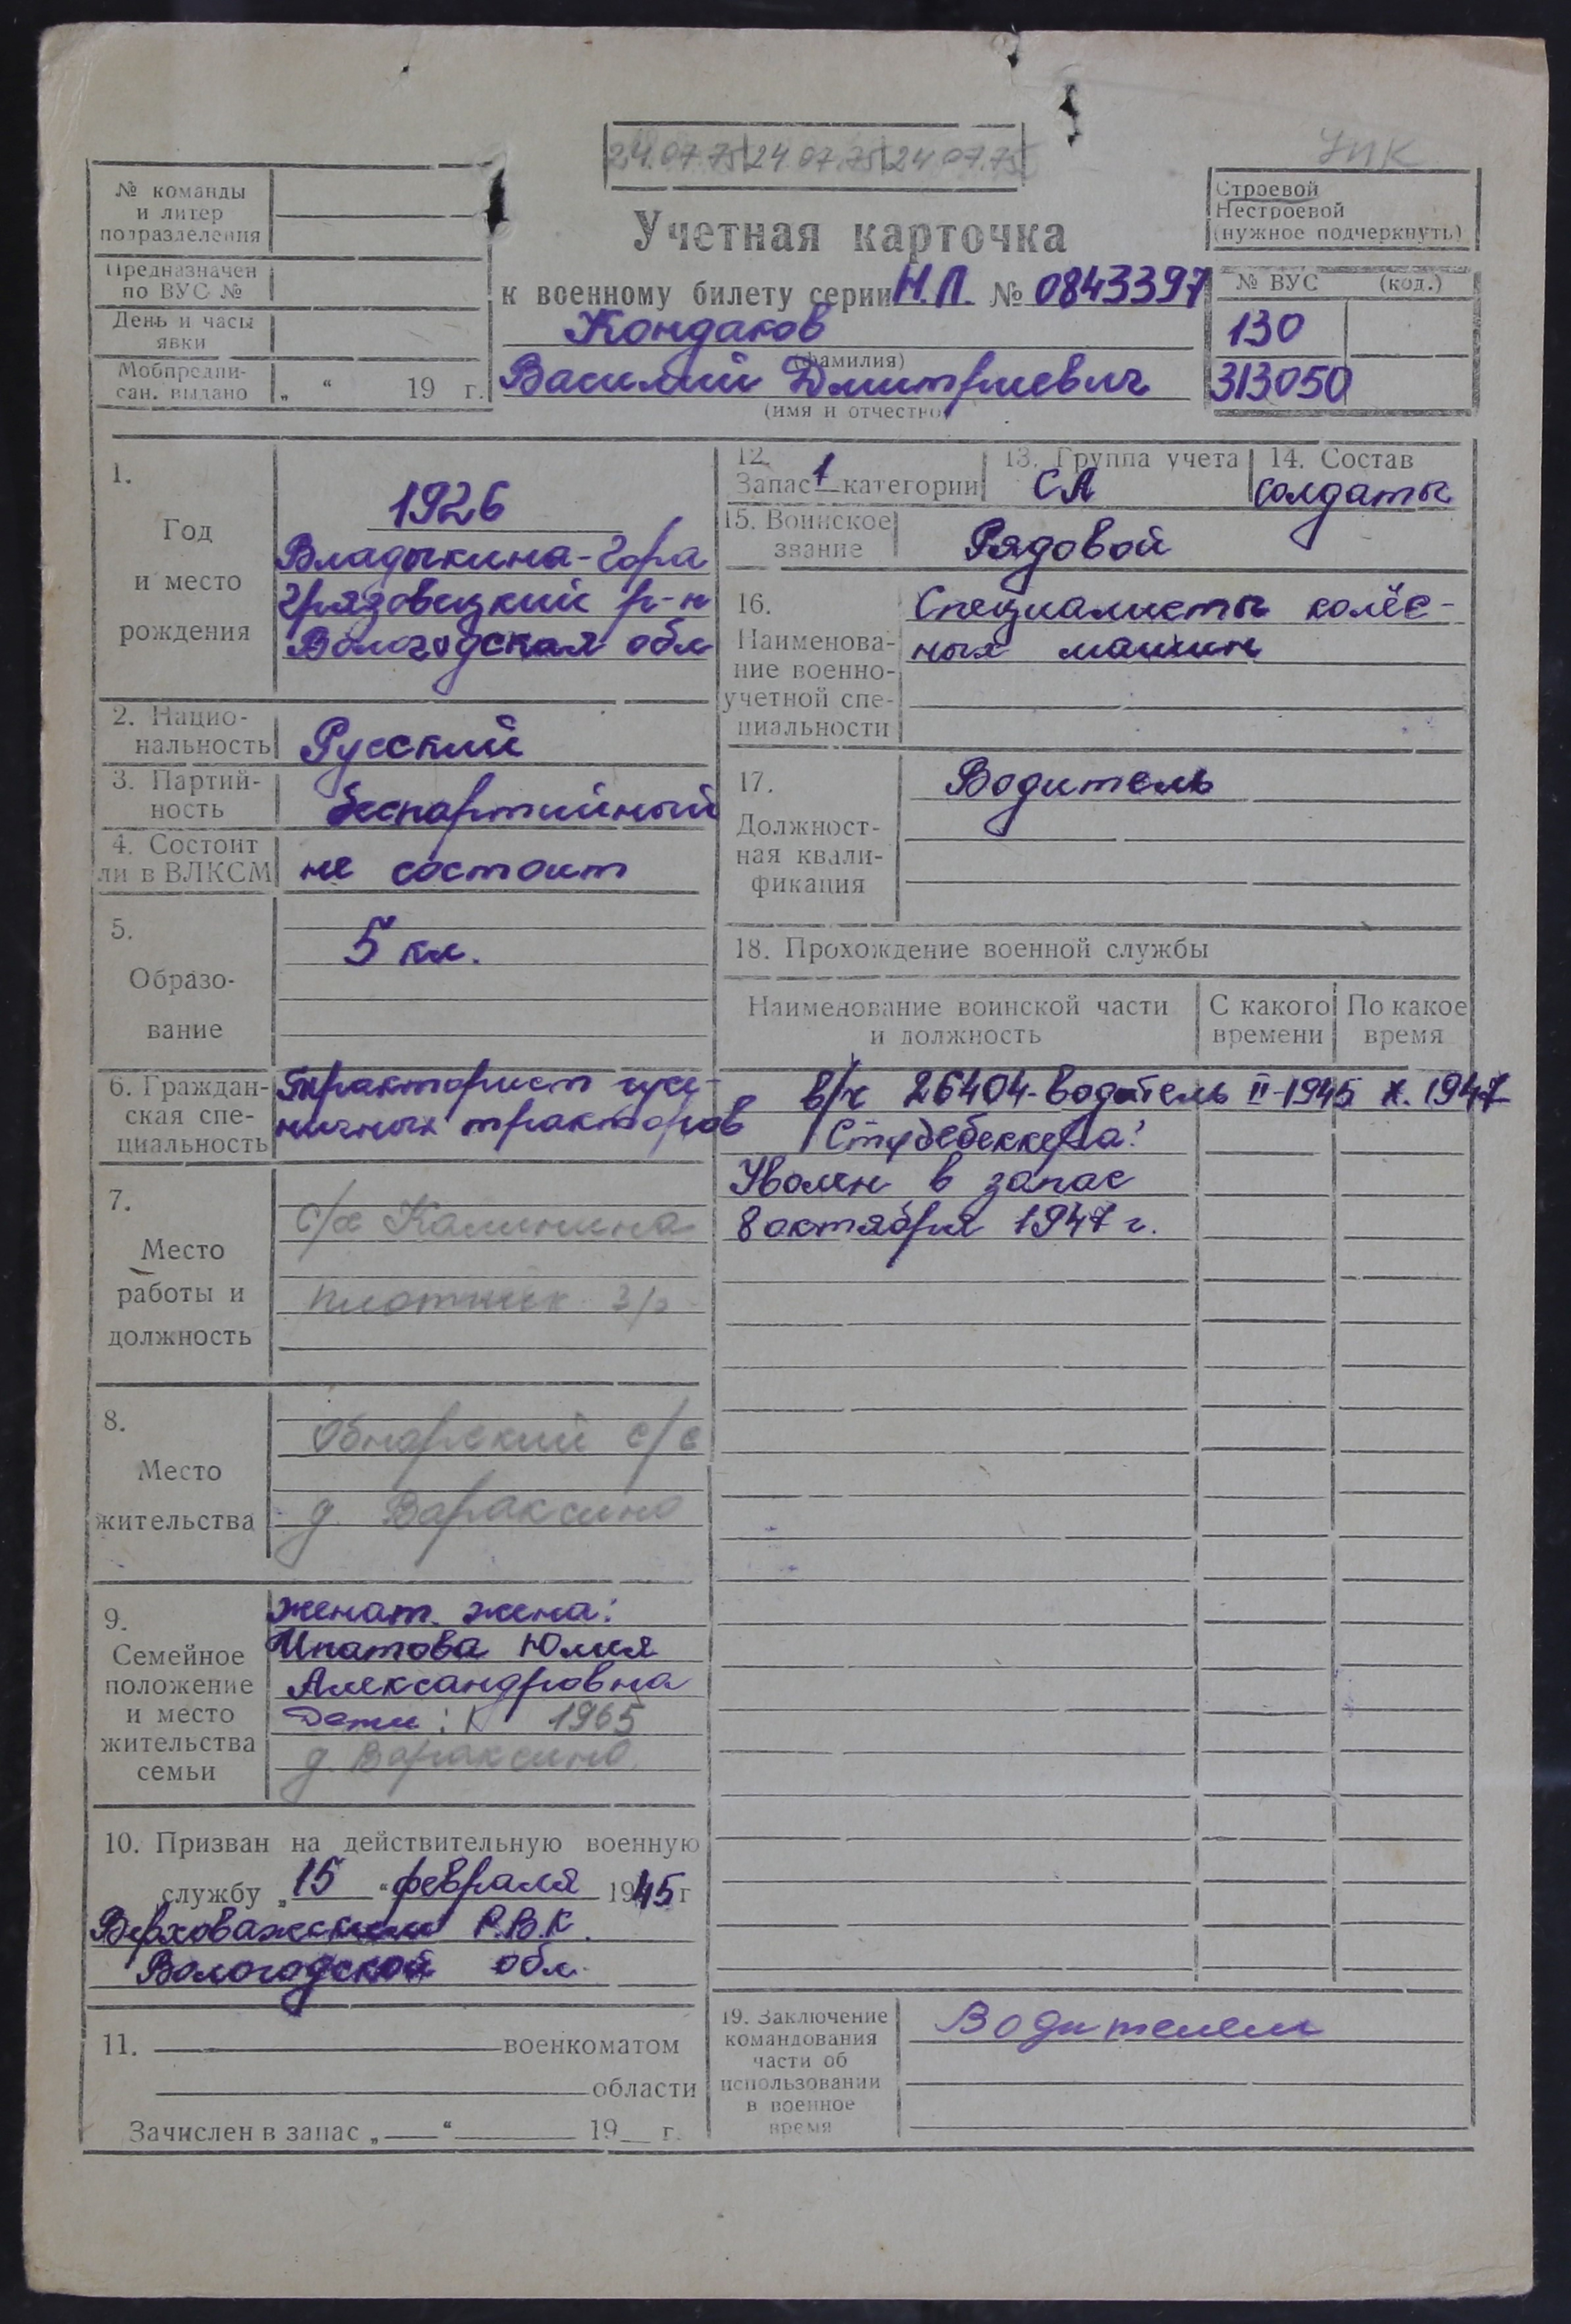 24.07.75 24.07.75 24.07.75
УПК
№ команды
и литер
подразделения
Предназначен
по ВУС №
День и часы
явки
Мобпредпи-
сан. выдано „ “ 19 г.
Учетная карточка
к военному билету серии Н.Л. № 0843397
Кондаков
(фамилия)
Василий Дмитриевич
(имя и отчество)
Строевой
Нестроевой
(нужное подчеркнуть)
№ ВУС (код.)
130
313050
1.
Год
и место
рождения
1926
Владыкина-Гора
Грязовецкий р-н
Вологодская обл
2. Нацио-
нальность
Русский
3. Партий-
ность
беспартийный
4. Состоит
ли в ВЛКСМ
не состоит
5.
Образо-
вание
5 кл.
6. Граждан-
ская спе-
циальность
Тракторист гусе-
ничных тракторов
7.
Место
работы и
должность
с/х Калинина
плотник 3/р
8.
Место
жительства
Обнорский с/с
д. Вараксино
9.
Семейное
положение
и место
жительства
семьи
женат. жена:
Ипатова Юлия
Александровна
Дети: 1965
д. Вараксино
10. Призван на действительную военную
службу „15“ февраля 1945 г
Верховажским Р.В.К.
Вологодской обл.
11. военкоматом
области
Зачислен в запас „ “ 19 г.
12.
Запас 1 категории
13. Группа учета
СА
14. Состав
солдаты
15. Воинское
звание
Рядовой
16.
Наименова-
ние военно-
учетной спе-
циальности
Специалисты колёс-
ных машин
17.
Должност-
ная квали-
фикация
Водитель
18. Прохождение военной службы
Наименование воинской части
и должность
С какого
времени
По какое
время
в/ч 26404-водитель II-1945 X. 1947
Студебеккера
Уволен в запас
8 октября 1947 г.
19. Заключение
командования
части об
использовании
в военное
время
Водителем